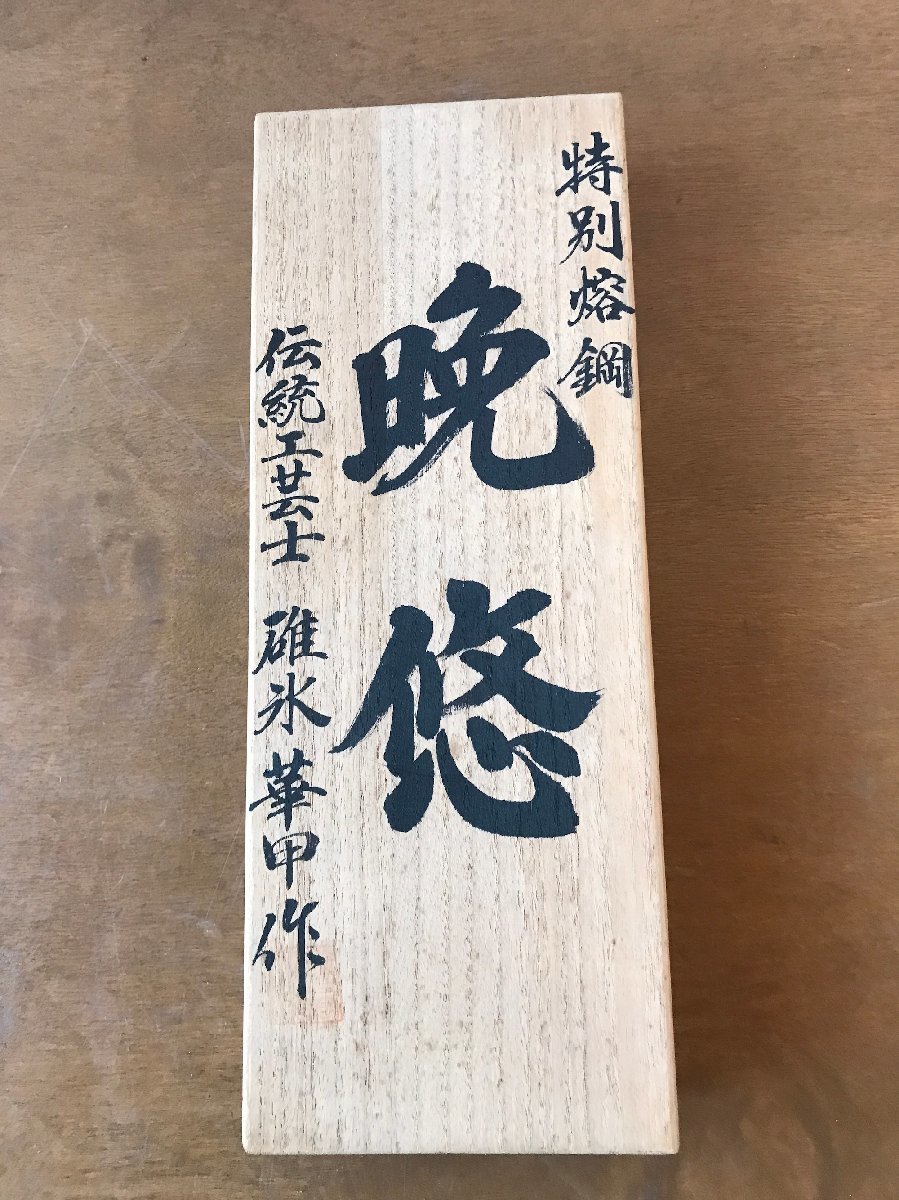 特別熔鋼
晩悠
伝統工芸士 碓氷華甲作